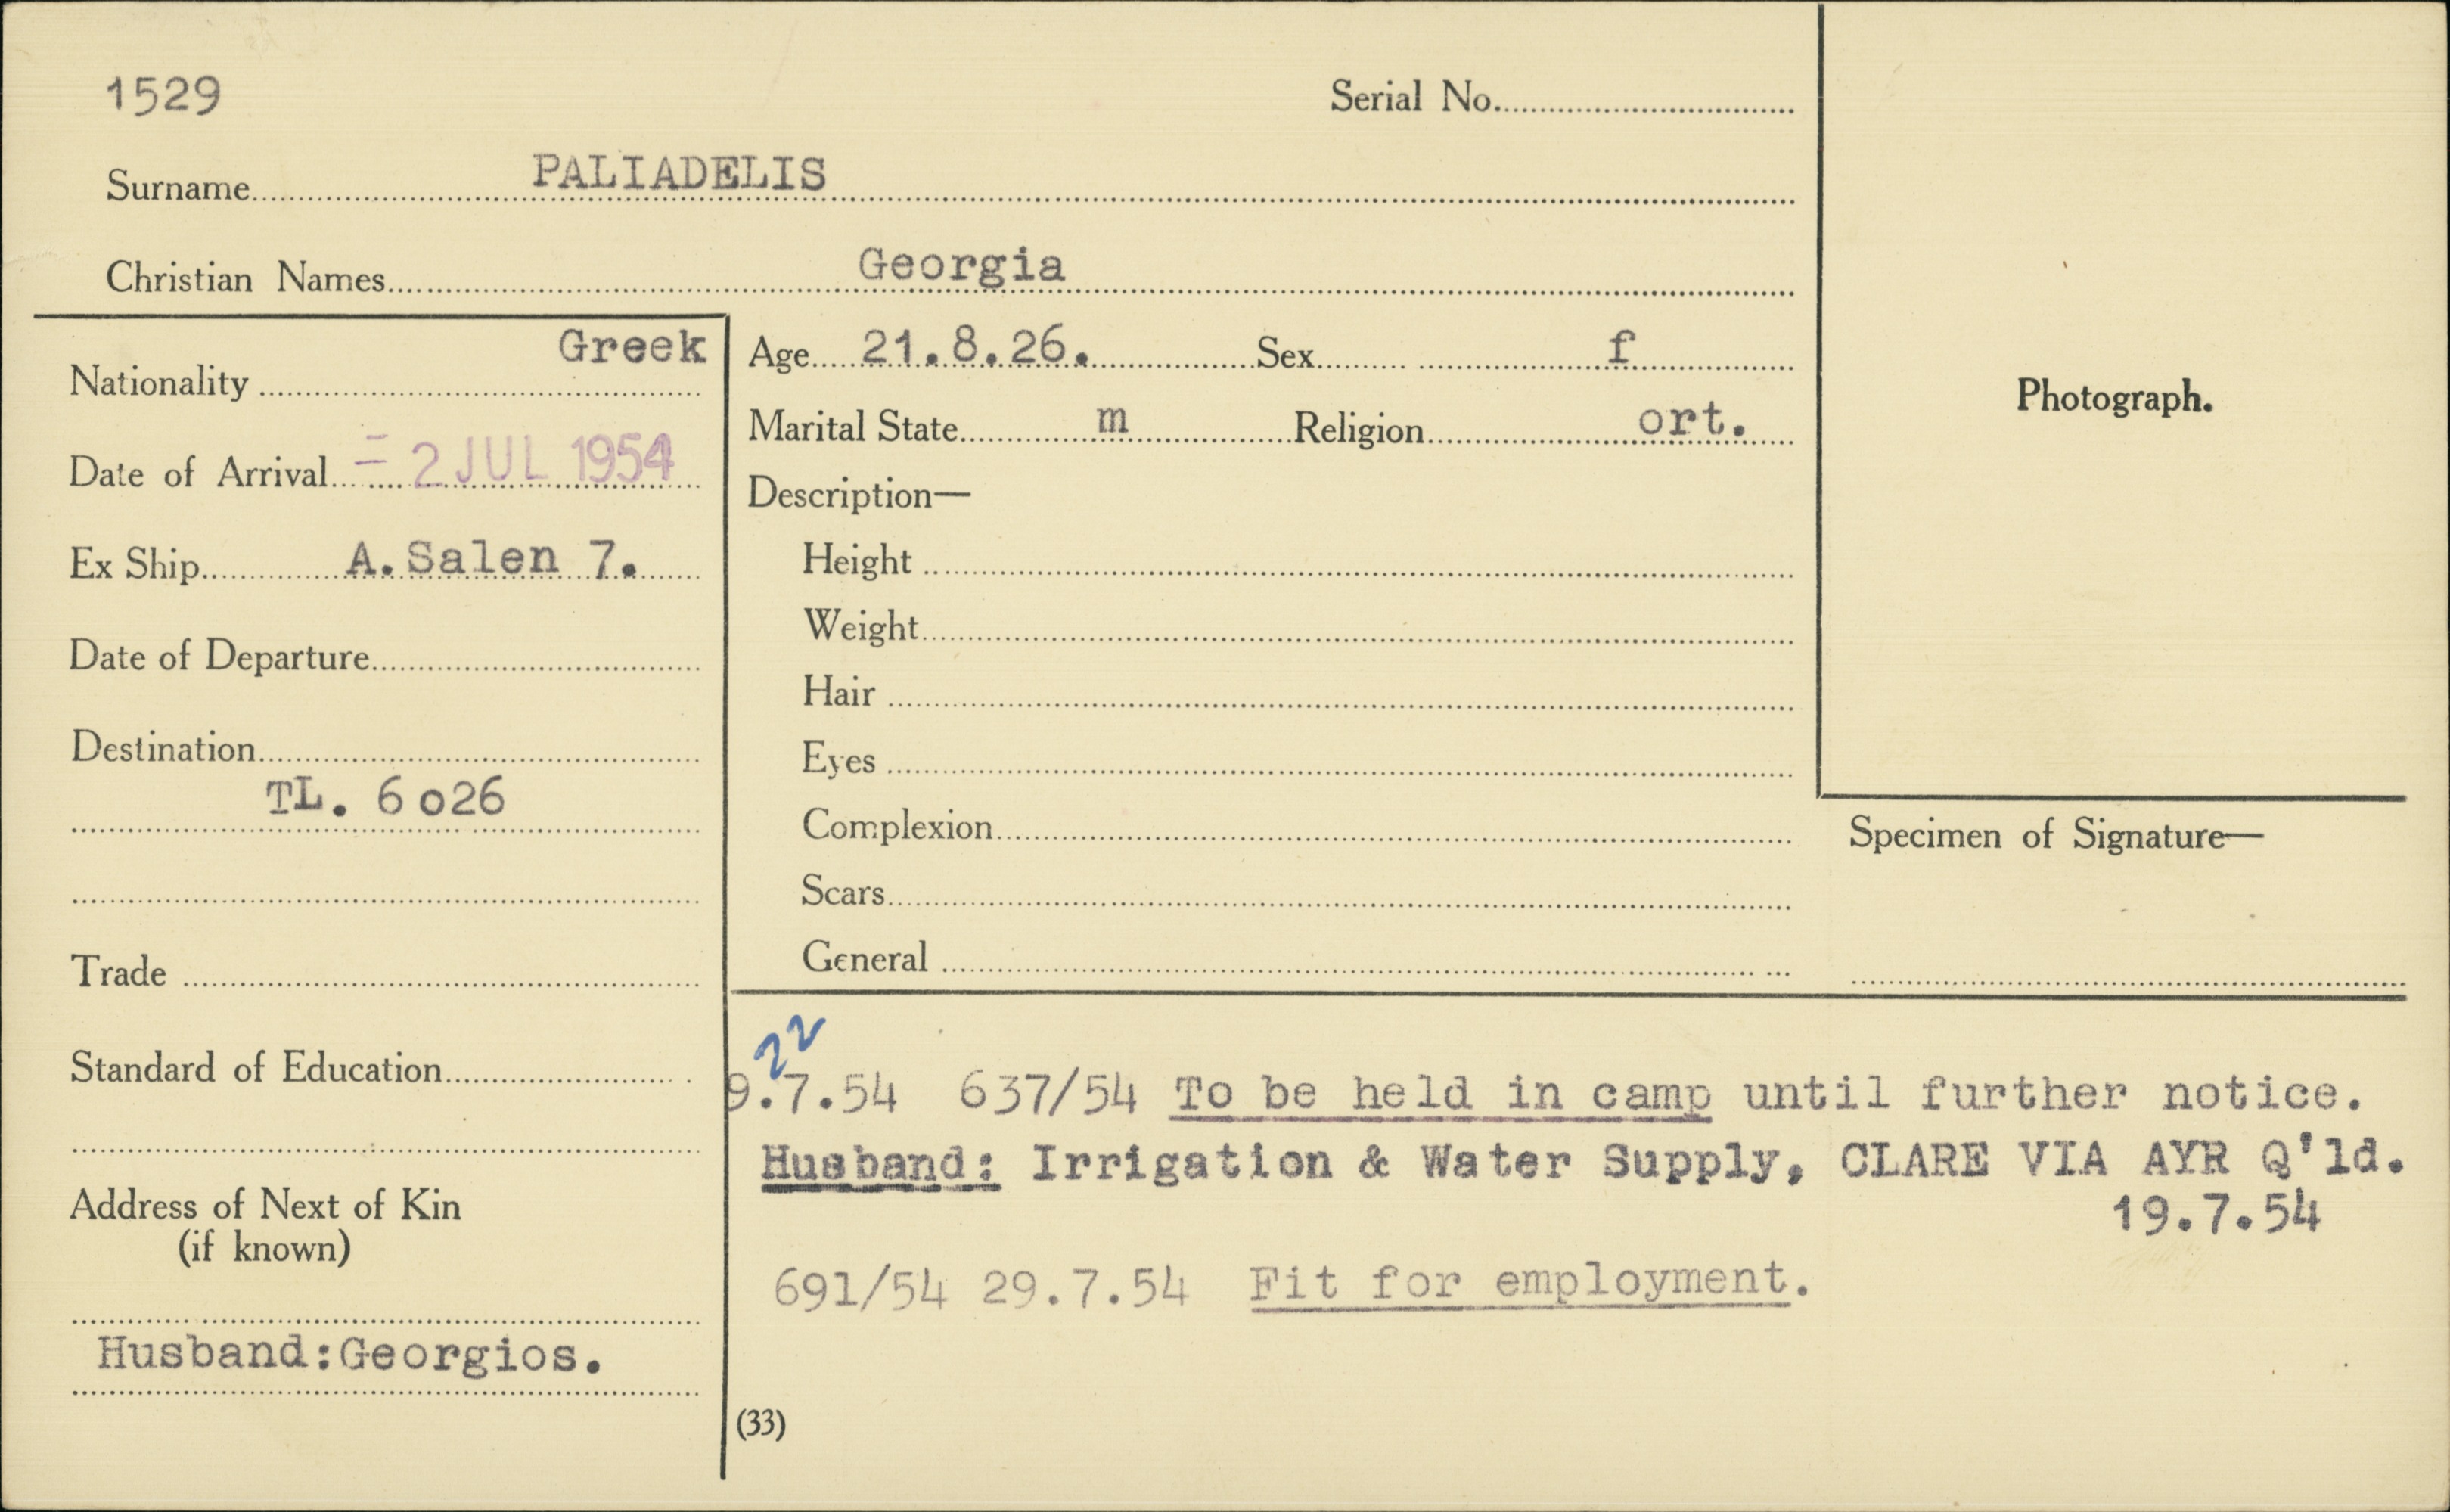 1529
Serial No.
Surname PALIADELIS
Christian Names Georgia
Nationality Greek
Date of Arrival = 2 JUL 1954
Ex Ship A. Salen 7.
Date of Departure
Destination
TL. 6026
Trade
Standard of Education
Address of Next of Kin
(if known)
Husband:Georgios.
Age 21.8.26. Sex f
Marital State m Religion ort.
Description—
Height
Weight
Hair
Eyes
Complexion
Scars
General
Photograph.
Specimen of Signature—
22
9.7.54 637/54 To be held in camp until further notice.
Husband: Irrigation & Water Supply, CLARE VIA AYR Q'ld.
19.7.54
691/54 29.7.54 Fit for employment.
(33)